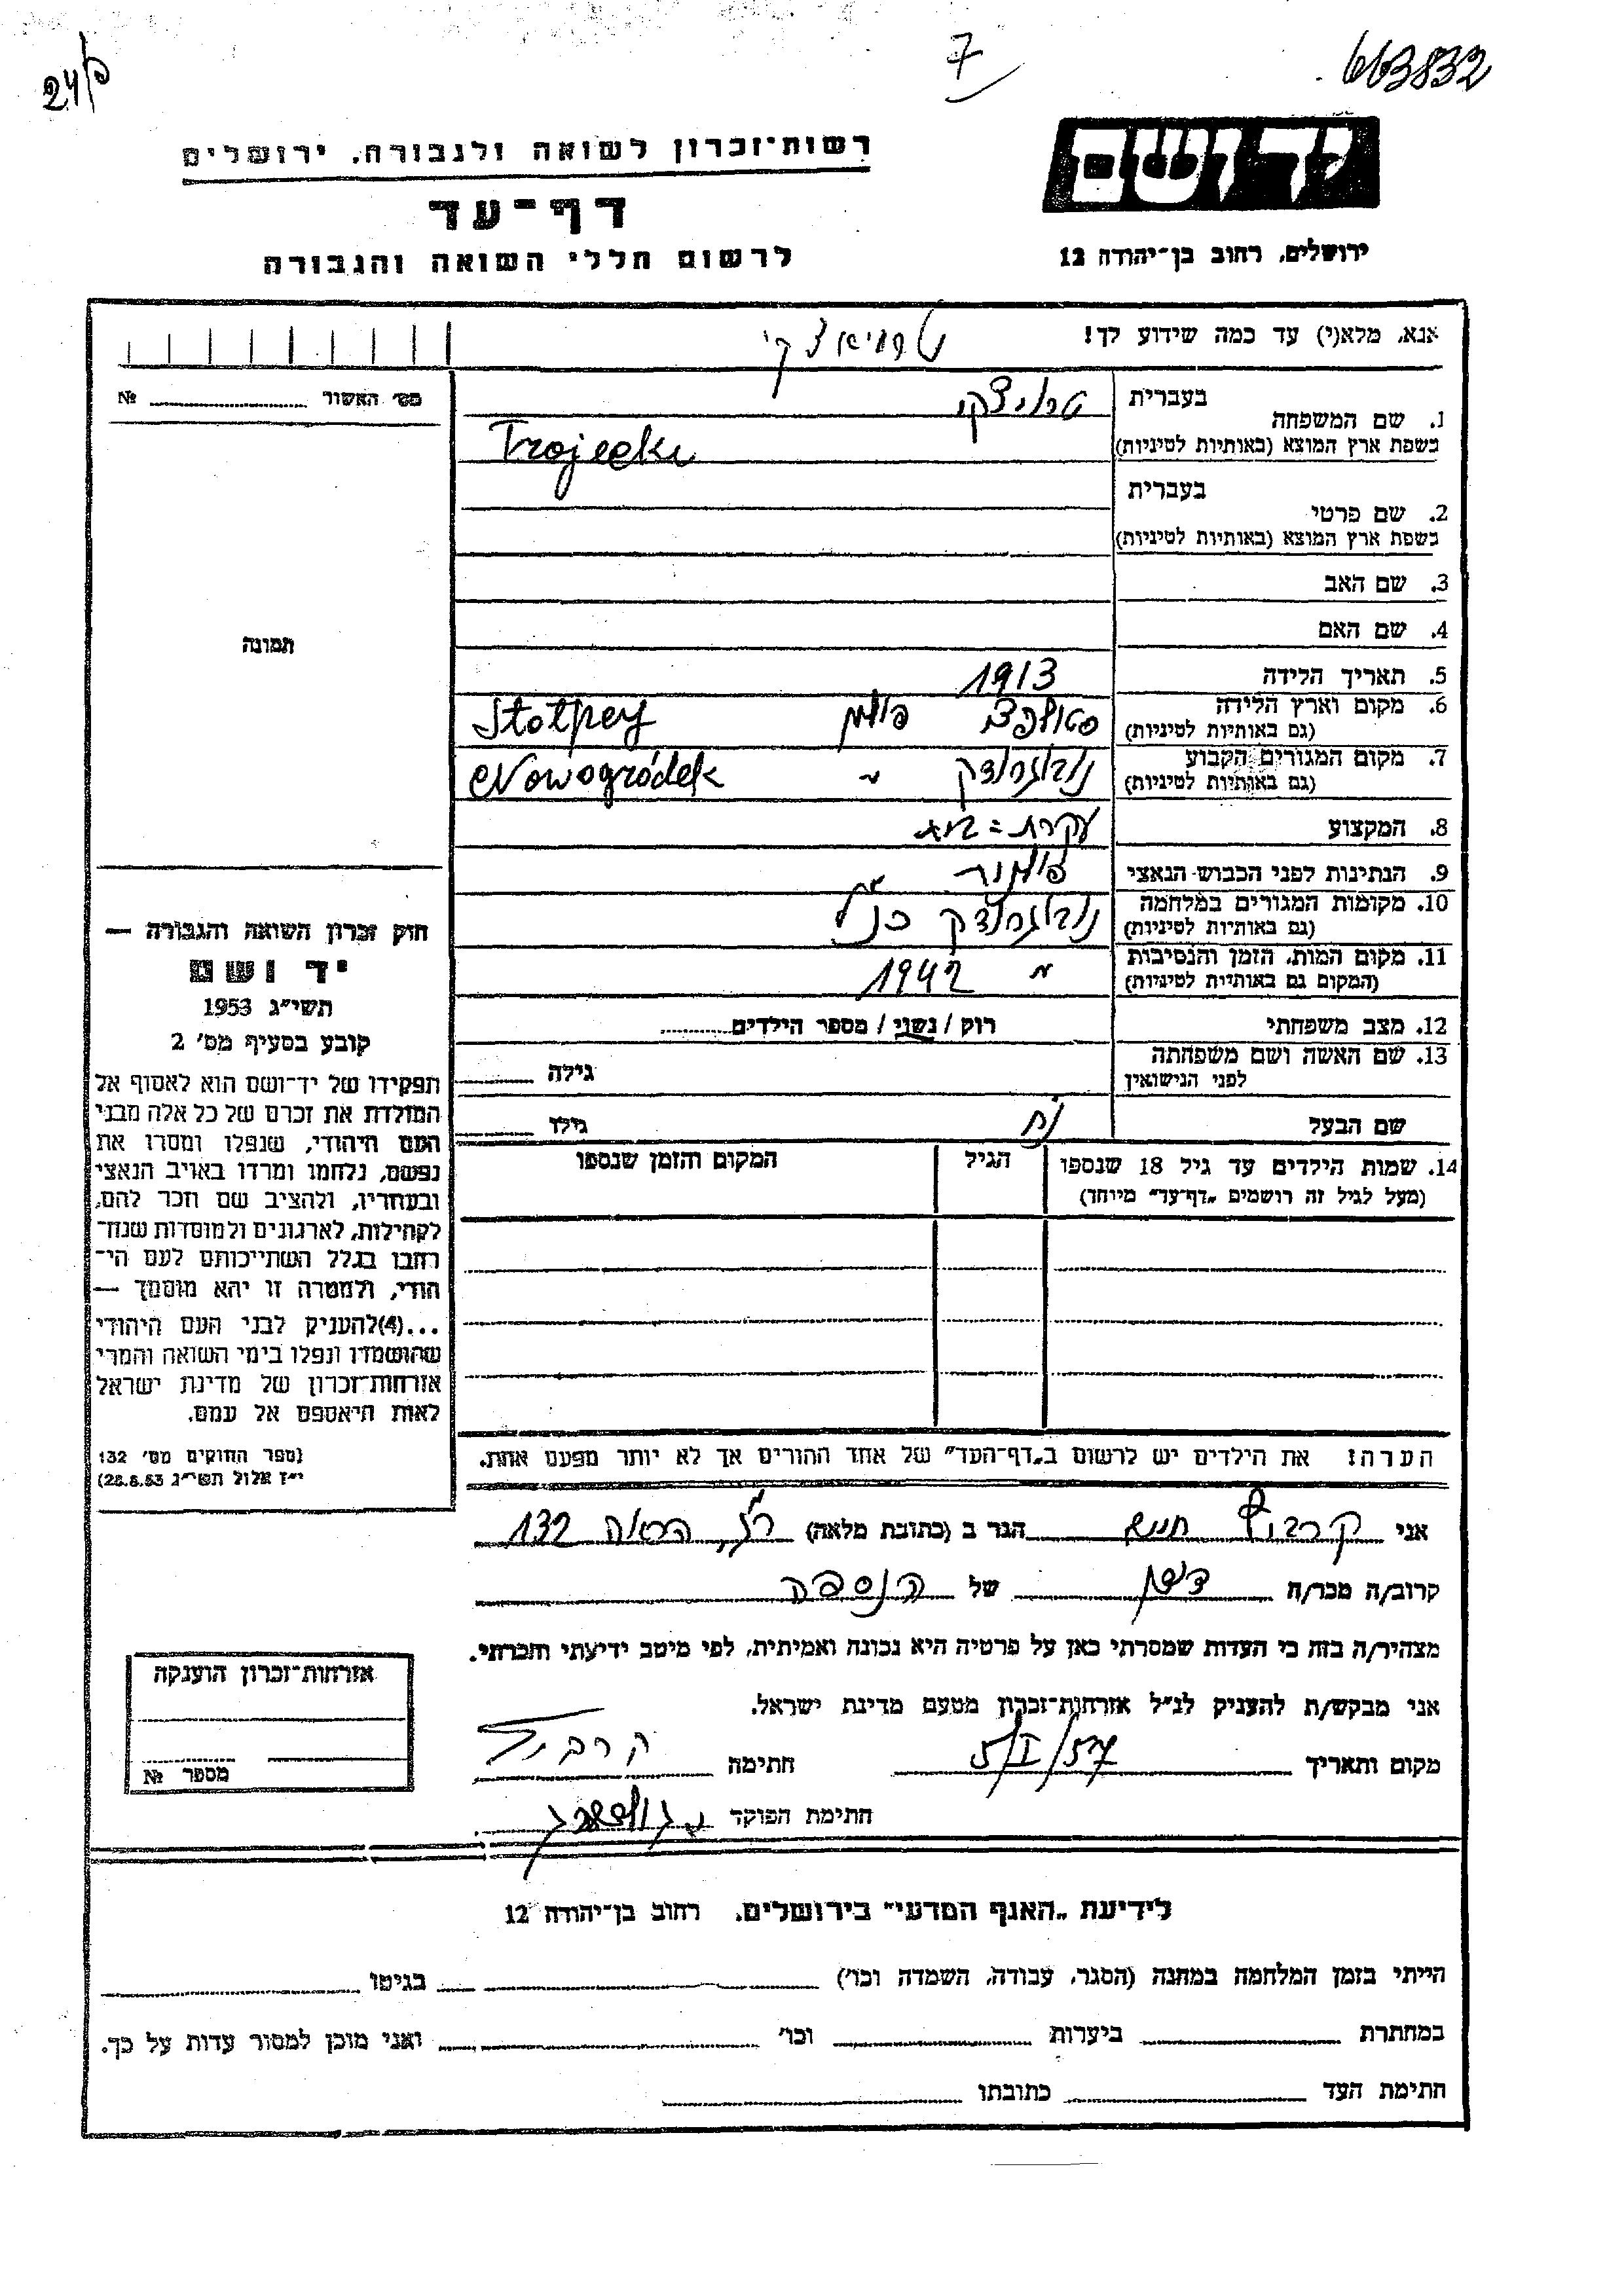 24/פ
7
663832
רשות־זכרון לשואה ולגבורה, ירושלים
יד ושם
דף־עד
לרשום חללי השואה והגבורה
ירושלים, רחוב בן־יהודה 12
אנא, מלא(י) עד כמה שידוע לך!
מס' האשור № 
1. שם המשפחה
בעברית טרויצקי
בשפת ארץ המוצא (באותיות לטיניות) Trojecki
2. שם פרטי
בעברית
בשפת ארץ המוצא (באותיות לטיניות)
3. שם האב
4. שם האם
5. תאריך הלידה 1913
6. מקום וארץ הלידה (גם באותיות לטיניות) סטולפצ פולין Stołpcy
7. מקום המגורים הקבוע (גם באותיות לטיניות) נובוגרודק " Nowogródek
8. המקצוע עקרת = בית
9. הנתינות לפני הכבוש הנאצי פולנית
10. מקומות המגורים במלחמה (גם באותיות לטיניות) נובוגרודק כנ"ל
11. מקום המות, הזמן והנסיבות (המקום גם באותיות לטיניות) " 1942
12. מצב משפחתי רוק / נשוי / מספר הילדים
13. שם האשה ושם משפחתה לפני הנישואין גילה
שם הבעל נח גילו
14. שמות הילדים עד גיל 18 שנספו הגיל המקום והזמן שנספו
(מעל לגיל זה רושמים „דף־עד" מיוחד)
תמונה
חוק זכרון השואה והגבורה —
יד ושם
תשי"ג 1953
קובע בסעיף מס' 2
תפקידו של יד־ושם הוא לאסוף אל
המולדת את זכרם של כל אלה מבני
העם היהודי, שנפלו ומסרו את
נפשם, נלחמו ומרדו באויב הנאצי
ובעוזריו, ולהציב שם וזכר להם,
לקהילות, לארגונים ולמוסדות שנח־
רבו בגלל השתייכותם לעם הי־
הודי, ולמטרה זו יהא מוסמך —
...(4)להעניק לבני העם היהודי
שהושמדו ונפלו בימי השואה והמרי
אזרחות־זכרון של מדינת ישראל
לאות היאספם אל עמם.
(ספר החוקים מס' 132
י"ז אלול תשי"ג 28.8.53)
הערה: את הילדים יש לרשום ב„דף־העד" של אחד ההורים אך לא יותר מפעם אחת.
אני הגר ב (כתובת מלאה) הרואה 132
קרוב/ה מכר/ה של הנספה
מצהיר/ה בזה כי העדות שמסרתי כאן על פרטיה היא נכונה ואמיתית, לפי מיטב ידיעתי והכרתי.
אני מבקש/ת להעניק לנ"ל אזרחות־זכרון מטעם מדינת ישראל.
מקום ותאריך 5/I/57 חתימה
חתימת הפוקד
אזרחות־זכרון הוענקה
מספר №
לידיעת „האגף המדעי" בירושלים, רחוב בן־יהודה 12
הייתי בזמן המלחמה במחנה (הסגר, עבודה, השמדה וכו') בגיטו
במחתרת ביערות וכו' ואני מוכן למסור עדות על כך.
חתימת העד כתובתו